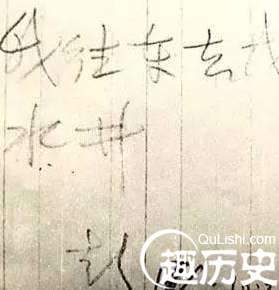 我往东去
水井
QuLishi.com
趣历史